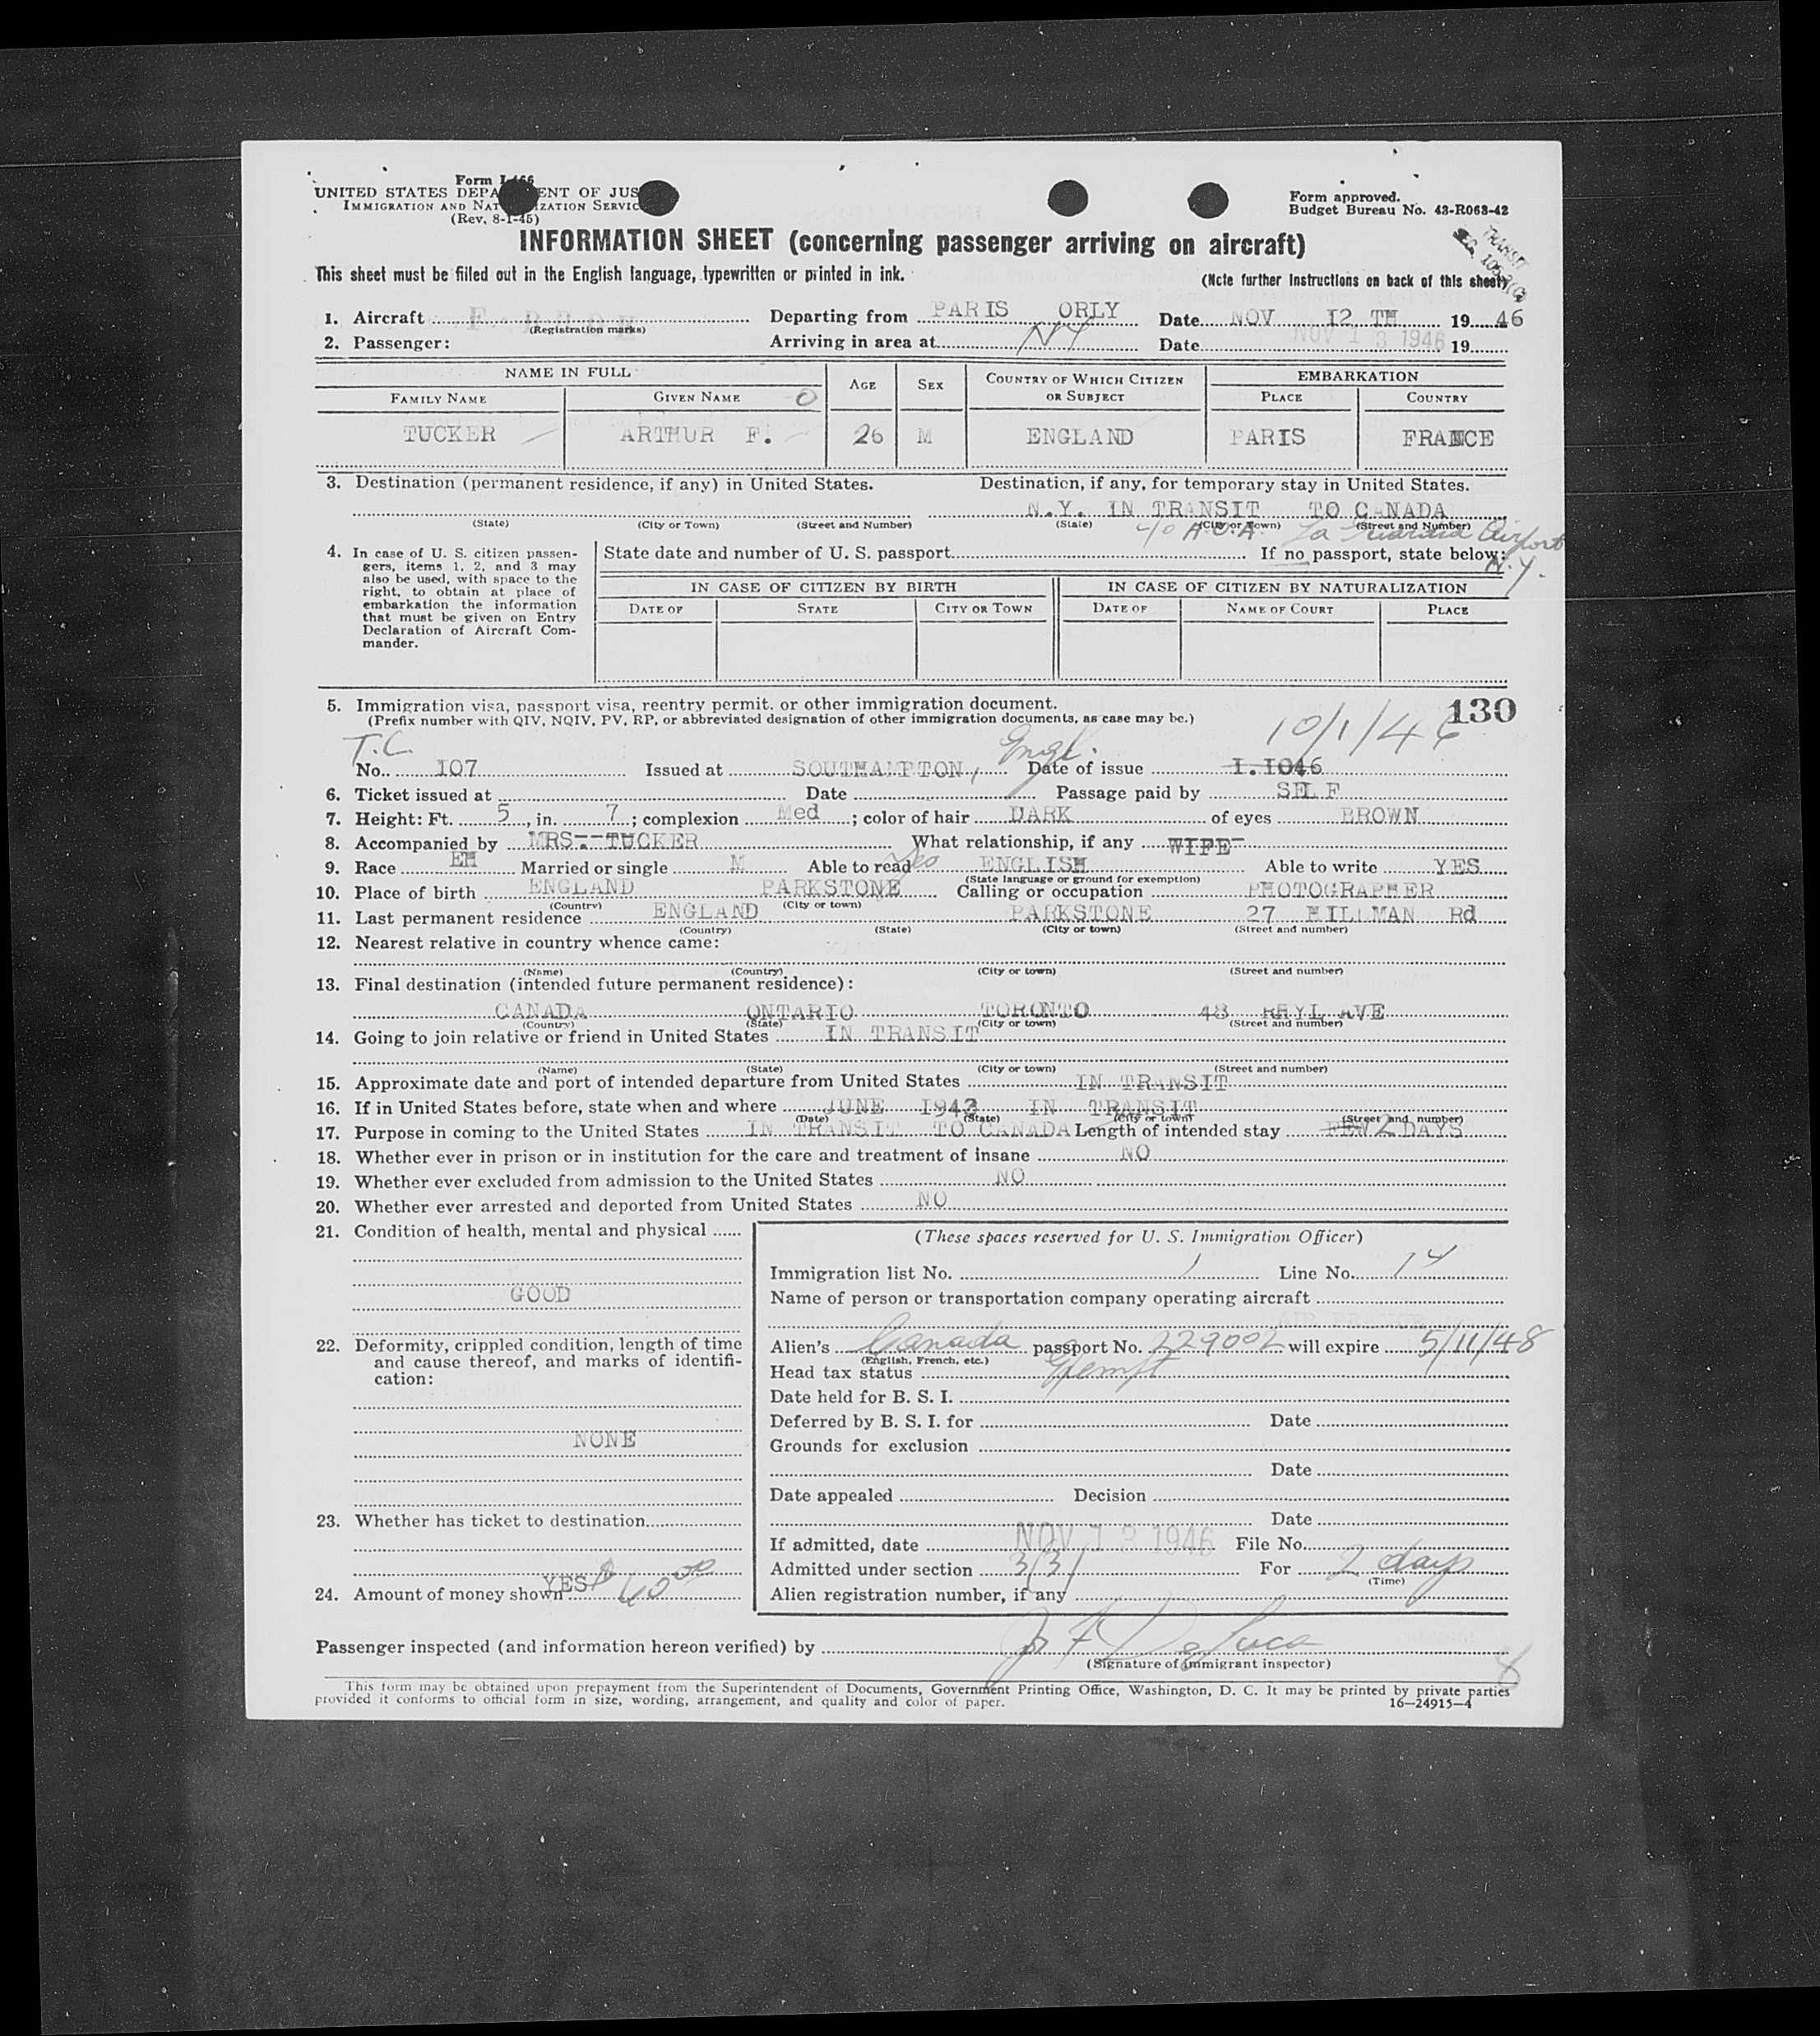 Form I-466
UNITED STATES DEPA ENT OF JUS
IMMIGRATION AND NAT IZATION SERVIC
(Rev. 8-1-45)
Form approved.
Budget Bureau No. 43-R063-42
INFORMATION SHEET (concerning passenger arriving on aircraft)
TRANSIT
SEC.
This sheet must be filled out in the English language, typewritten or printed in ink.
(Note further instructions on back of this sheet)
1. Aircraft (Registration marks) Departing from PARIS ORLY Date NOV I2 TH 19 46
2. Passenger: Arriving in area at NY Date NOV 1 3 1946 19
NAME IN FULL AGE SEX COUNTRY OF WHICH CITIZEN OR SUBJECT EMBARKATION
FAMILY NAME GIVEN NAME PLACE COUNTRY
TUCKER ARTHUR F. 26 M ENGLAND PARIS FRANCE
3. Destination (permanent residence, if any) in United States. Destination, if any, for temporary stay in United States.
N.Y. IN TRANSIT TO CANADA
(State) (City or Town) (Street and Number) (State) (City or Town) (Street and Number)
c/o A.O.A. La Guardia Airport
N.Y.
4. In case of U. S. citizen passen-
gers, items 1, 2, and 3 may
also be used, with space to the
right, to obtain at place of
embarkation the information
that must be given on Entry
Declaration of Aircraft Com-
mander.
State date and number of U. S. passport If no passport, state below:
IN CASE OF CITIZEN BY BIRTH IN CASE OF CITIZEN BY NATURALIZATION
DATE OF STATE CITY OR TOWN DATE OF NAME OF COURT PLACE
5. Immigration visa, passport visa, reentry permit, or other immigration document. 130
(Prefix number with QIV, NQIV, PV, RP, or abbreviated designation of other immigration documents, as case may be.)
T.C. Engl. 10/1/46
No. I07 Issued at SOUTHAMPTON, Date of issue I.I046
6. Ticket issued at Date Passage paid by SELF
7. Height: Ft. 5, in. 7; complexion Med; color of hair DARK of eyes BROWN
8. Accompanied by MRS. TUCKER What relationship, if any WIFE
9. Race EH Married or single M Able to read Yes ENGLISH Able to write YES
(State language or ground for exemption)
10. Place of birth ENGLAND PARKSTONE Calling or occupation PHOTOGRAPHER
(Country) (City or town)
11. Last permanent residence ENGLAND PARKSTONE 27 HILLMAN Rd
(Country) (State) (City or town) (Street and number)
12. Nearest relative in country whence came:
(Name) (Country) (City or town) (Street and number)
13. Final destination (intended future permanent residence):
CANADA ONTARIO TORONTO 48 RHYL AVE
(Country) (State) (City or town) (Street and number)
14. Going to join relative or friend in United States IN TRANSIT
(Name) (State) (City or town) (Street and number)
15. Approximate date and port of intended departure from United States IN TRANSIT
16. If in United States before, state when and where JUNE I943 IN TRANSIT
(Date) (State) (City or town) (Street and number)
17. Purpose in coming to the United States IN TRANSIT TO CANADA Length of intended stay FEW 2 DAYS
18. Whether ever in prison or in institution for the care and treatment of insane NO
19. Whether ever excluded from admission to the United States NO
20. Whether ever arrested and deported from United States NO
21. Condition of health, mental and physical
GOOD
22. Deformity, crippled condition, length of time
and cause thereof, and marks of identifi-
cation:
NONE
23. Whether has ticket to destination
YES
24. Amount of money shown $ 40 00
(These spaces reserved for U. S. Immigration Officer)
Immigration list No. 1 Line No. 14
Name of person or transportation company operating aircraft
AIR FRANCE
Alien's Canada passport No. 229002 will expire 5/11/48
(English, French, etc.)
Head tax status Exempt
Date held for B. S. I.
Deferred by B. S. I. for Date
Grounds for exclusion
Date
Date appealed Decision
Date
If admitted, date NOV 1 3 1946 File No.
Admitted under section 3/3/ For 2 days
(Time)
Alien registration number, if any
Passenger inspected (and information hereon verified) by J F DeLuca
(Signature of immigrant inspector)
This form may be obtained upon prepayment from the Superintendent of Documents, Government Printing Office, Washington, D. C. It may be printed by private parties
provided it conforms to official form in size, wording, arrangement, and quality and color of paper.
16—24915-4